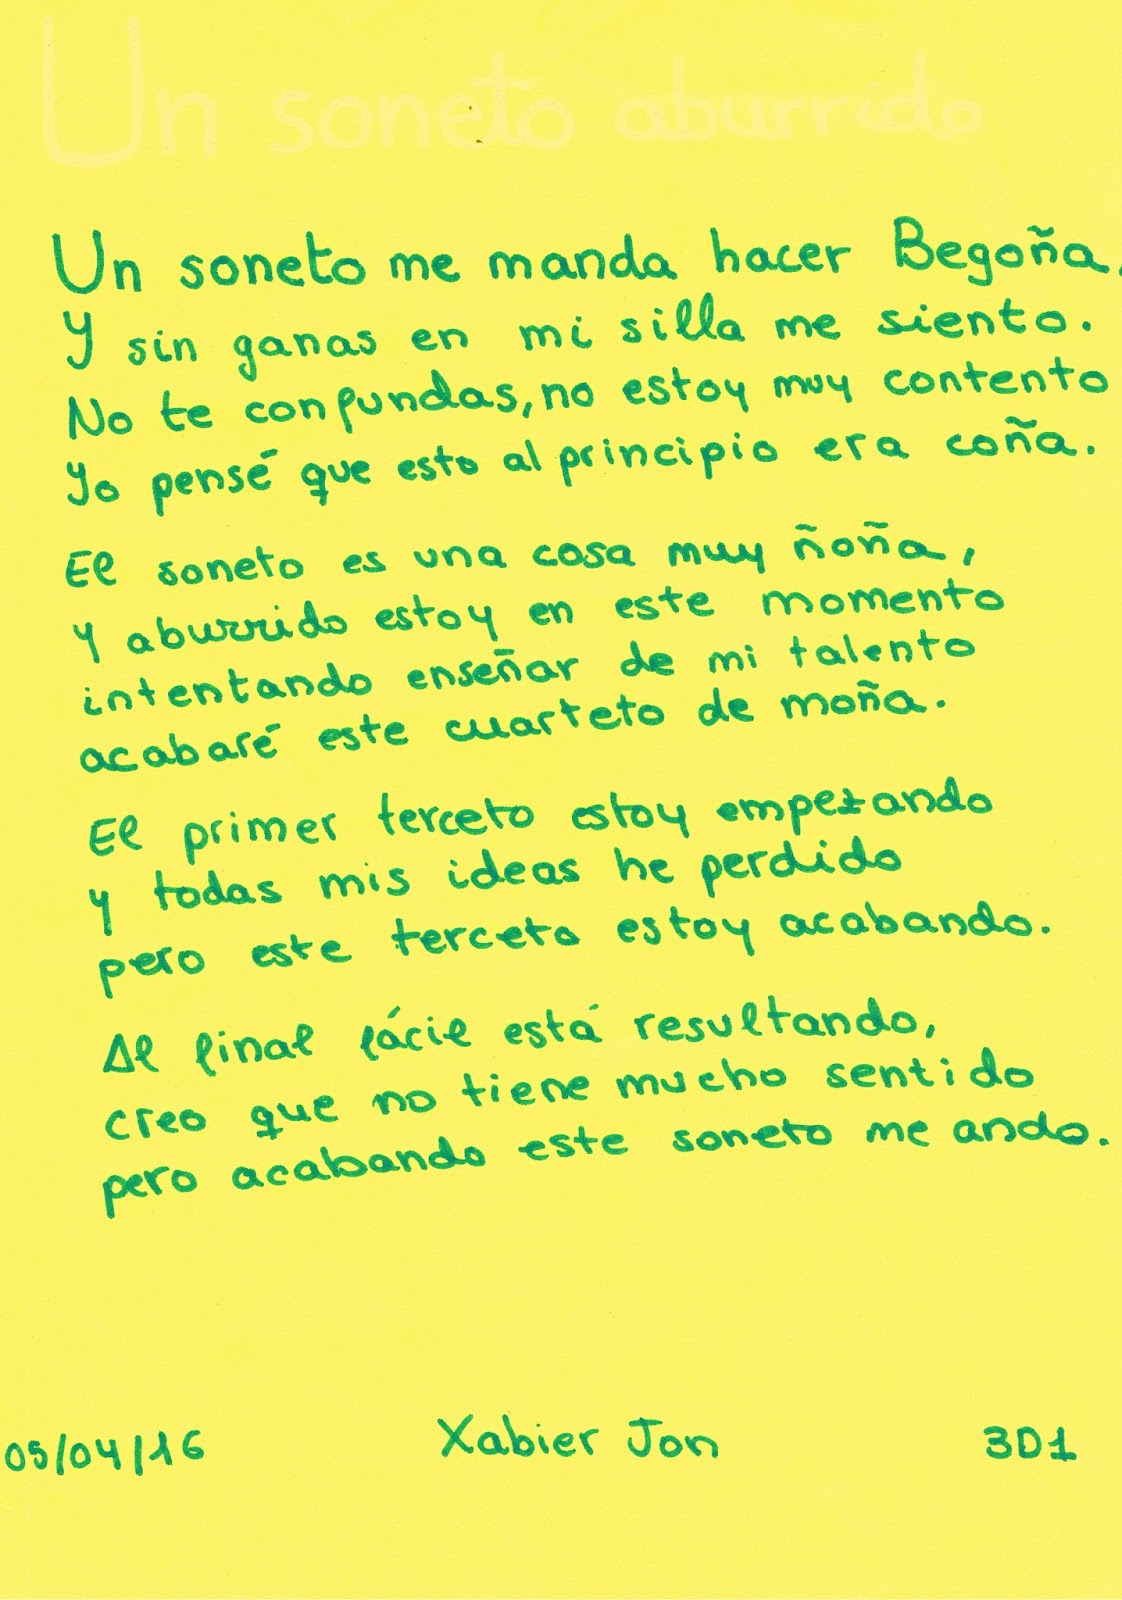 Un soneto aburrido
Un soneto me manda hacer Begoña,
Y sin ganas en mi silla me siento.
No te confundas, no estoy muy contento
Yo pensé que esto al principio era coña.
El soneto es una cosa muy ñoña,
y aburrido estoy en este momento
intentando enseñar de mi talento
acabaré este cuarteto de moña.
El primer terceto estoy empezando
y todas mis ideas he perdido
pero este terceto estoy acabando.
Al final fácil está resultando,
creo que no tiene mucho sentido
pero acabando este soneto me ando.
05/04/16 Xabier Jon 3D1